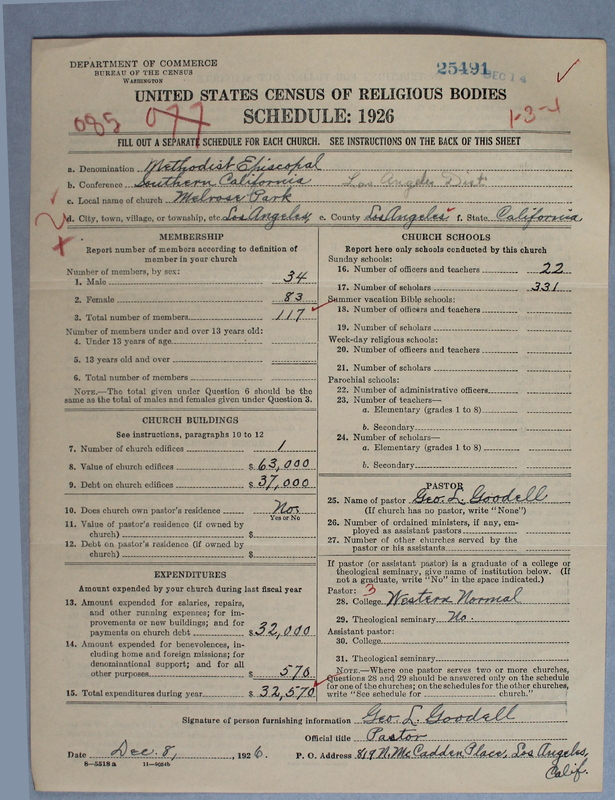 DEPARTMENT OF COMMERCE
BUREAU OF THE CENSUS
WASHINGTON
25491 DEC 14
UNITED STATES CENSUS OF RELIGIOUS BODIES
SCHEDULE: 1926
085 077 1-3-1
FILL OUT A SEPARATE SCHEDULE FOR EACH CHURCH. SEE INSTRUCTIONS ON THE BACK OF THIS SHEET
a. Denomination Methodist Episcopal
b. Conference Southern California Los Angeles Dist
c. Local name of church Melrose Park
d. City, town, village, or township, etc. Los Angeles, e. County Los Angeles f. State California
MEMBERSHIP
Report number of members according to definition of
member in your church
Number of members, by sex:
1. Male 34
2. Female 83
3. Total number of members 117
Number of members under and over 13 years old:
4. Under 13 years of age
5. 13 years old and over
6. Total number of members
NOTE.—The total given under Question 6 should be the
same as the total of males and females given under Question 3.
CHURCH BUILDINGS
See instructions, paragraphs 10 to 12
7. Number of church edifices 1
8. Value of church edifices $63,000
9. Debt on church edifices $37,000
10. Does church own pastor's residence No.
Yes or No
11. Value of pastor's residence (if owned by
church) $
12. Debt on pastor's residence (if owned by
church) $
EXPENDITURES
Amount expended by your church during last fiscal year
13. Amount expended for salaries, repairs,
and other running expenses; for im-
provements or new buildings; and for
payments on church debt $32,000
14. Amount expended for benevolences, in-
cluding home and foreign missions; for
denominational support; and for all
other purposes $ 570
15. Total expenditures during year $32,570
CHURCH SCHOOLS
Report here only schools conducted by this church
Sunday schools:
16. Number of officers and teachers 22
17. Number of scholars 331
Summer vacation Bible schools:
18. Number of officers and teachers
19. Number of scholars
Week-day religious schools:
20. Number of officers and teachers
21. Number of scholars
Parochial schools:
22. Number of administrative officers
23. Number of teachers—
a. Elementary (grades 1 to 8)
b. Secondary
24. Number of scholars—
a. Elementary (grades 1 to 8)
b. Secondary
PASTOR
25. Name of pastor Geo. L. Goodell
(If church has no pastor, write "None")
26. Number of ordained ministers, if any, em-
ployed as assistant pastors
27. Number of other churches served by the
pastor or his assistants
If pastor (or assistant pastor) is a graduate of a college or
theological seminary, give name of institution below. (If
not a graduate, write "No" in the space indicated.)
Pastor: 3
28. College Western Normal
29. Theological seminary No.
Assistant pastor:
30. College
31. Theological seminary
NOTE.—Where one pastor serves two or more churches,
Questions 28 and 29 should be answered only on the schedule
for one of the churches; on the schedules for the other churches,
write "See schedule for church."
Signature of person furnishing information Geo. L. Goodell
Official title Pastor
Date Dec. 8, 1926. P. O. Address 819 N. McCadden Place, Los Angeles,
Calif.
8—5518a 11—9024b